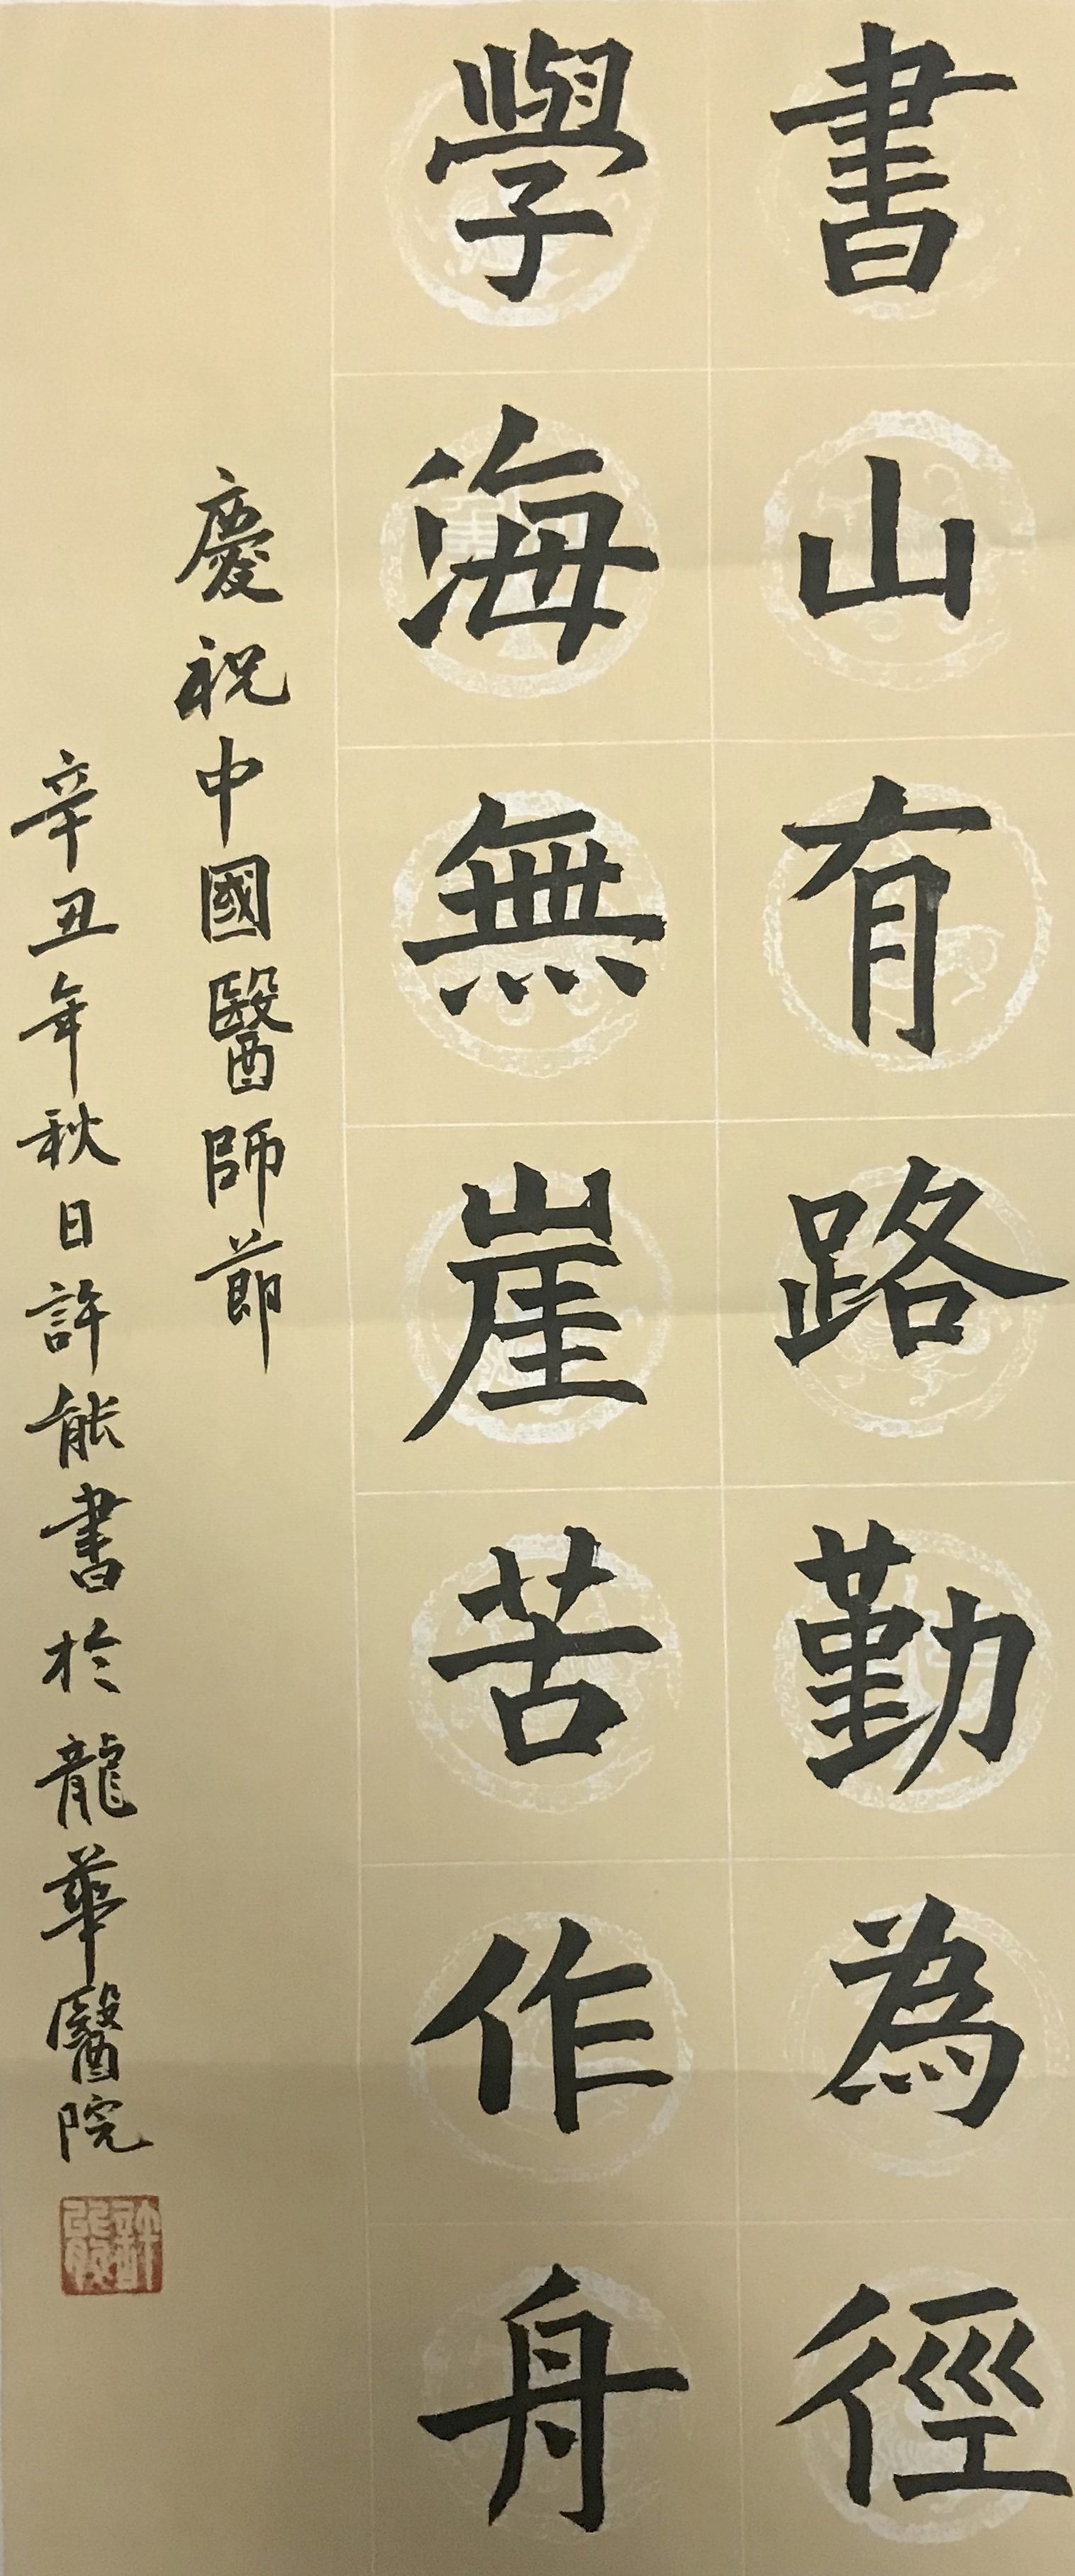 書山有路勤為徑
學海無崖苦作舟
慶祝中國醫師節
辛丑年秋日許能書於龍華醫院